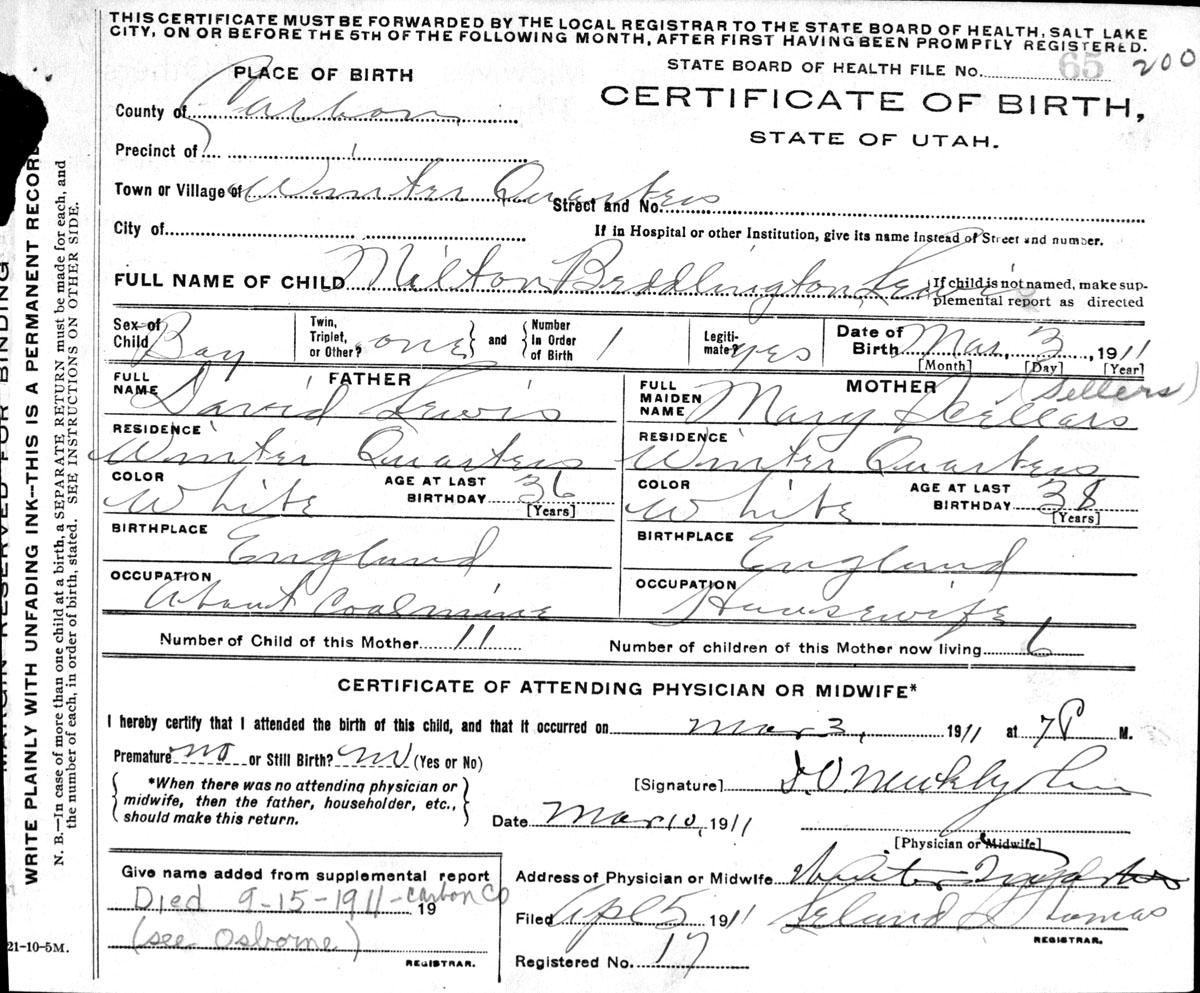 THIS CERTIFICATE MUST BE FORWARDED BY THE LOCAL REGISTRAR TO THE STATE BOARD OF HEALTH, SALT LAKE
CITY, ON OR BEFORE THE 5TH OF THE FOLLOWING MONTH, AFTER FIRST HAVING BEEN PROMPTLY REGISTERED.
STATE BOARD OF HEALTH FILE No. 65 200
PLACE OF BIRTH
CERTIFICATE OF BIRTH,
STATE OF UTAH.
County of Carbon
Precinct of
Town or Village of Winter Quarters
Street and No.
City of
If in Hospital or other Institution, give its name Instead of Street and number.
FULL NAME OF CHILD Milton Beddlington Lewis
If child is not named, make sup-
plemental report as directed
Sex of Child Boy
Twin, Triplet, or Other? one and Number In Order of Birth 1
Legiti-mate? yes
Date of Birth Mar. 3, 1911
[Month] [Day] [Year]
FATHER
FULL NAME David Lewis
RESIDENCE Winter Quarters
COLOR White AGE AT LAST BIRTHDAY 36 [Years]
BIRTHPLACE England
OCCUPATION About Coalmine
MOTHER (Sellers)
FULL MAIDEN NAME Mary Scellars
RESIDENCE Winter Quarters
COLOR White AGE AT LAST BIRTHDAY 38 [Years]
BIRTHPLACE England
OCCUPATION Housewife
Number of Child of this Mother 11 Number of children of this Mother now living 6
CERTIFICATE OF ATTENDING PHYSICIAN OR MIDWIFE*
I hereby certify that I attended the birth of this child, and that it occurred on Mar 3, 1911 at 7 P M.
Premature no or Still Birth? no (Yes or No)
*When there was no attending physician or
midwife, then the father, householder, etc.,
should make this return.
[Signature]
Date Mar 10, 1911
[Physician or Midwife]
Address of Physician or Midwife Winter Quarters
Filed Apl 5 1911 Leland S Thomas
REGISTRAR.
Registered No. 17
Give name added from supplemental report
Died 9-15-1911 - Carbon Co 19
(see Osborne)
REGISTRAR.
21-10-5M.
MARGIN RESERVED FOR BINDING
WRITE PLAINLY WITH UNFADING INK--THIS IS A PERMANENT RECORD
N. B.—In case of more than one child at a birth, a SEPARATE RETURN must be made for each, and
the number of each, in order of birth, stated. SEE INSTRUCTIONS ON OTHER SIDE.